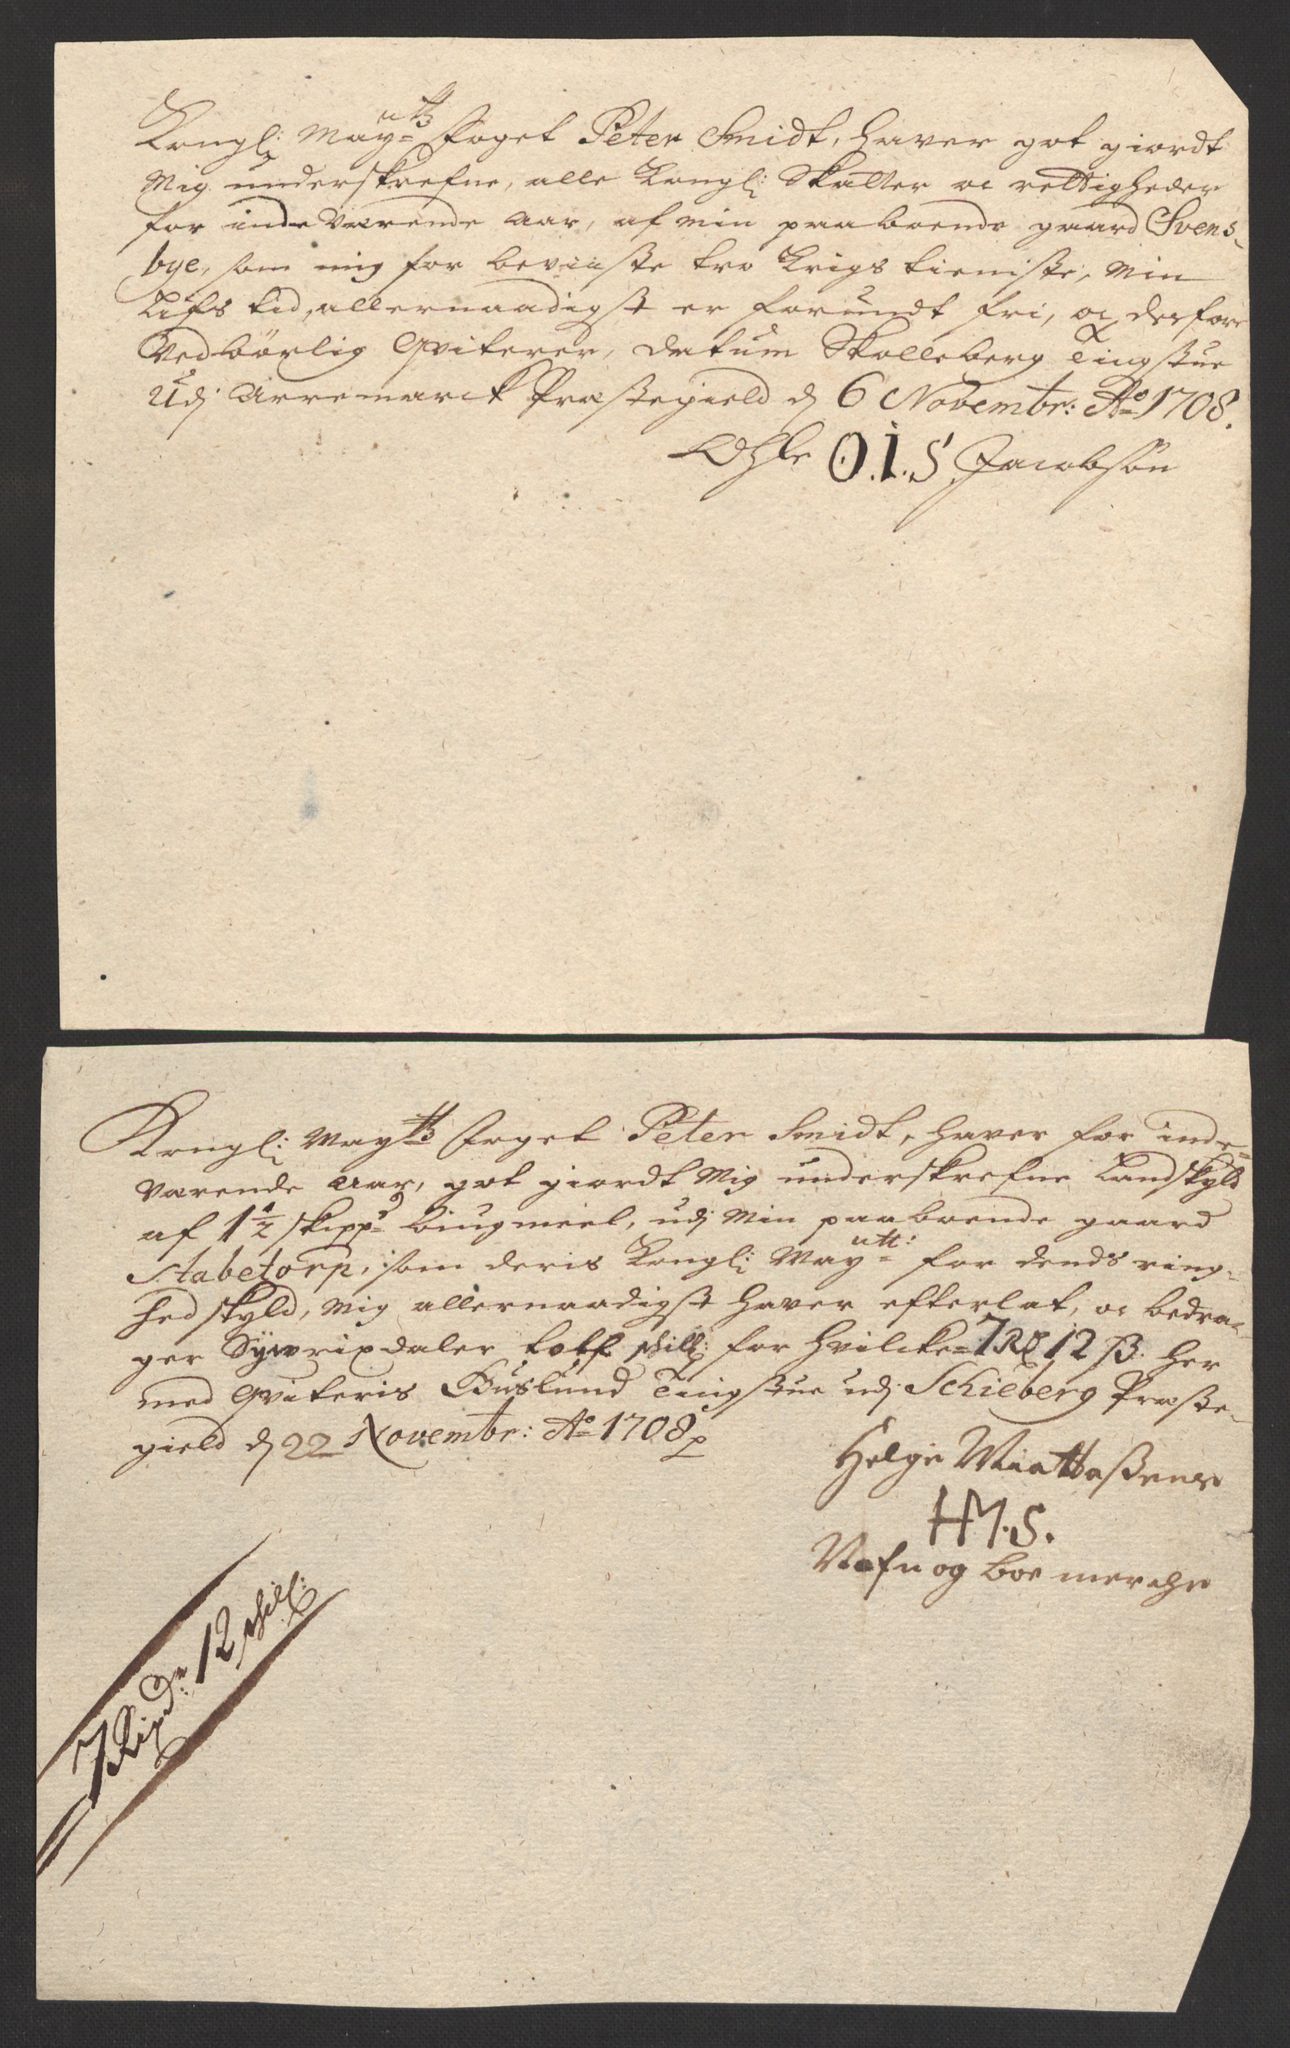 Kongl: May:tts Foget Peter Smidt, haver got giordt
Mig underskrefne, alle Kongl: Skatter oc rettigheder
for indeværende Aar, af min paaboende gaard Svens-
bye, som mig for beviiste tro Krigs tieniste, Min
Lifs tid, allernaadigst er forundt fri, oc derfore
Vedbörlig Qviterer, Datum Skolleberg Tingstue
Udj Arremarck Præstegield d 6 Novembr: Ao 1708.
Ohle O.I.S Jacobsön
Kongl: May:tts Foget Peter Smidt, haver for inde-
værende Aar, got giordt Mig underskrefne Landskyld
af 1½ skippd biugmeel, udj Min paaboende gaard
Stabetorp, som deris Kongl: May:tt: for dends ring-
hed skyld, Mig allernaadigst haver efterlat, oc bedra-
ger Syv rixdaler tolf skill: for hvilcke 7 Rd 12 ß. her
med Qviteris Buslund Tingstue udj Schieberg Præste-
gield d 22 Novembr: Ao 1708
Helge Mattessens
HM.S.
Nafn og boe merche
7 Rixdr: 12 skill: